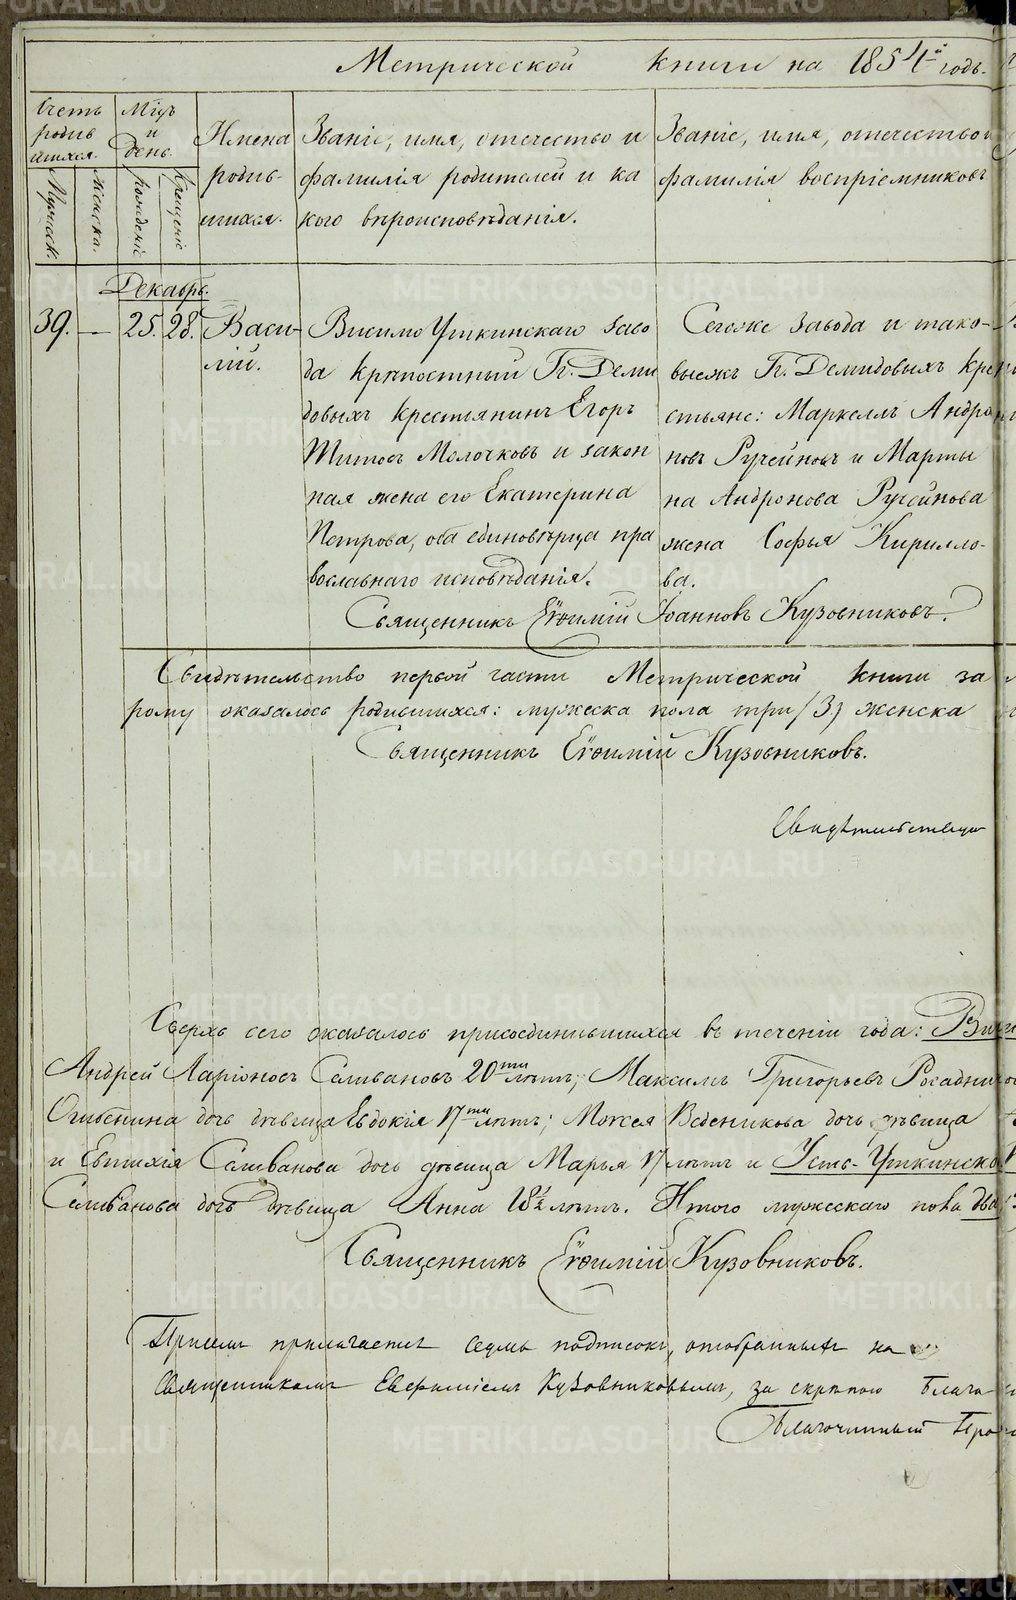 Метрической книги на 1854й годъ.
Счетъ родившихся.
Мужеск.
Женска.
Мѣц. и день.
рожденія
крещенія
Имена родив-
шихся.
Званіе, имя, отечество и
фамилія родителей и ка
кого вѣроисповѣданія.
Званіе, имя, отечество и
фамилія воспріемниковъ
Декабрь.
39. — 25. 28. Васи-
лій.
Висимо Уткинскаго заво
да крѣпостный Гг. Деми
довыхъ крестьянинъ Егоръ
Титовъ Молочковъ и закон
ная жена его Екатерина
Петрова, оба единовѣрца пра
вославнаго исповѣданія.
Тогоже завода и тако-
выежъ Гг. Демидовыхъ кре
стьяне: Маркеллъ Андро
новъ Ручейновъ и Марты
на Андронова Ручейнова
жена Софья Кирилло-
ва.
Священникъ Евѳимій Іоанновъ Кузовниковъ.
Свидѣтельство первой части Метрической книги за
рому оказалось родившихся: мужеска пола три /3/ женска
Священникъ Евѳимій Кузовниковъ.
Свидѣтельствую
Сверхъ сего оказалось присоединившихся въ теченіи года:
Андрей Ларіоновъ Селивановъ 20ти лѣтъ; Максимъ Григорьевъ
дочь дѣвица Евдокія 17ти лѣтъ; Моисея Веденикова дочь дѣвица
и Евтихія Селиванова дочь дѣвица Марья 17 лѣтъ и Усть-Уткинско
Селиванова дочь дѣвица Анна 18½ лѣтъ. Итого мужескаго пола два
Священникъ Евѳимій Кузовниковъ.
При семъ прилагается седмь подписокъ, отобранныхъ
Священникомъ Евфиміемъ Кузовниковымъ, за скрѣпою Благо
Благочинный Про
METRIKI.GASO-URAL.RU